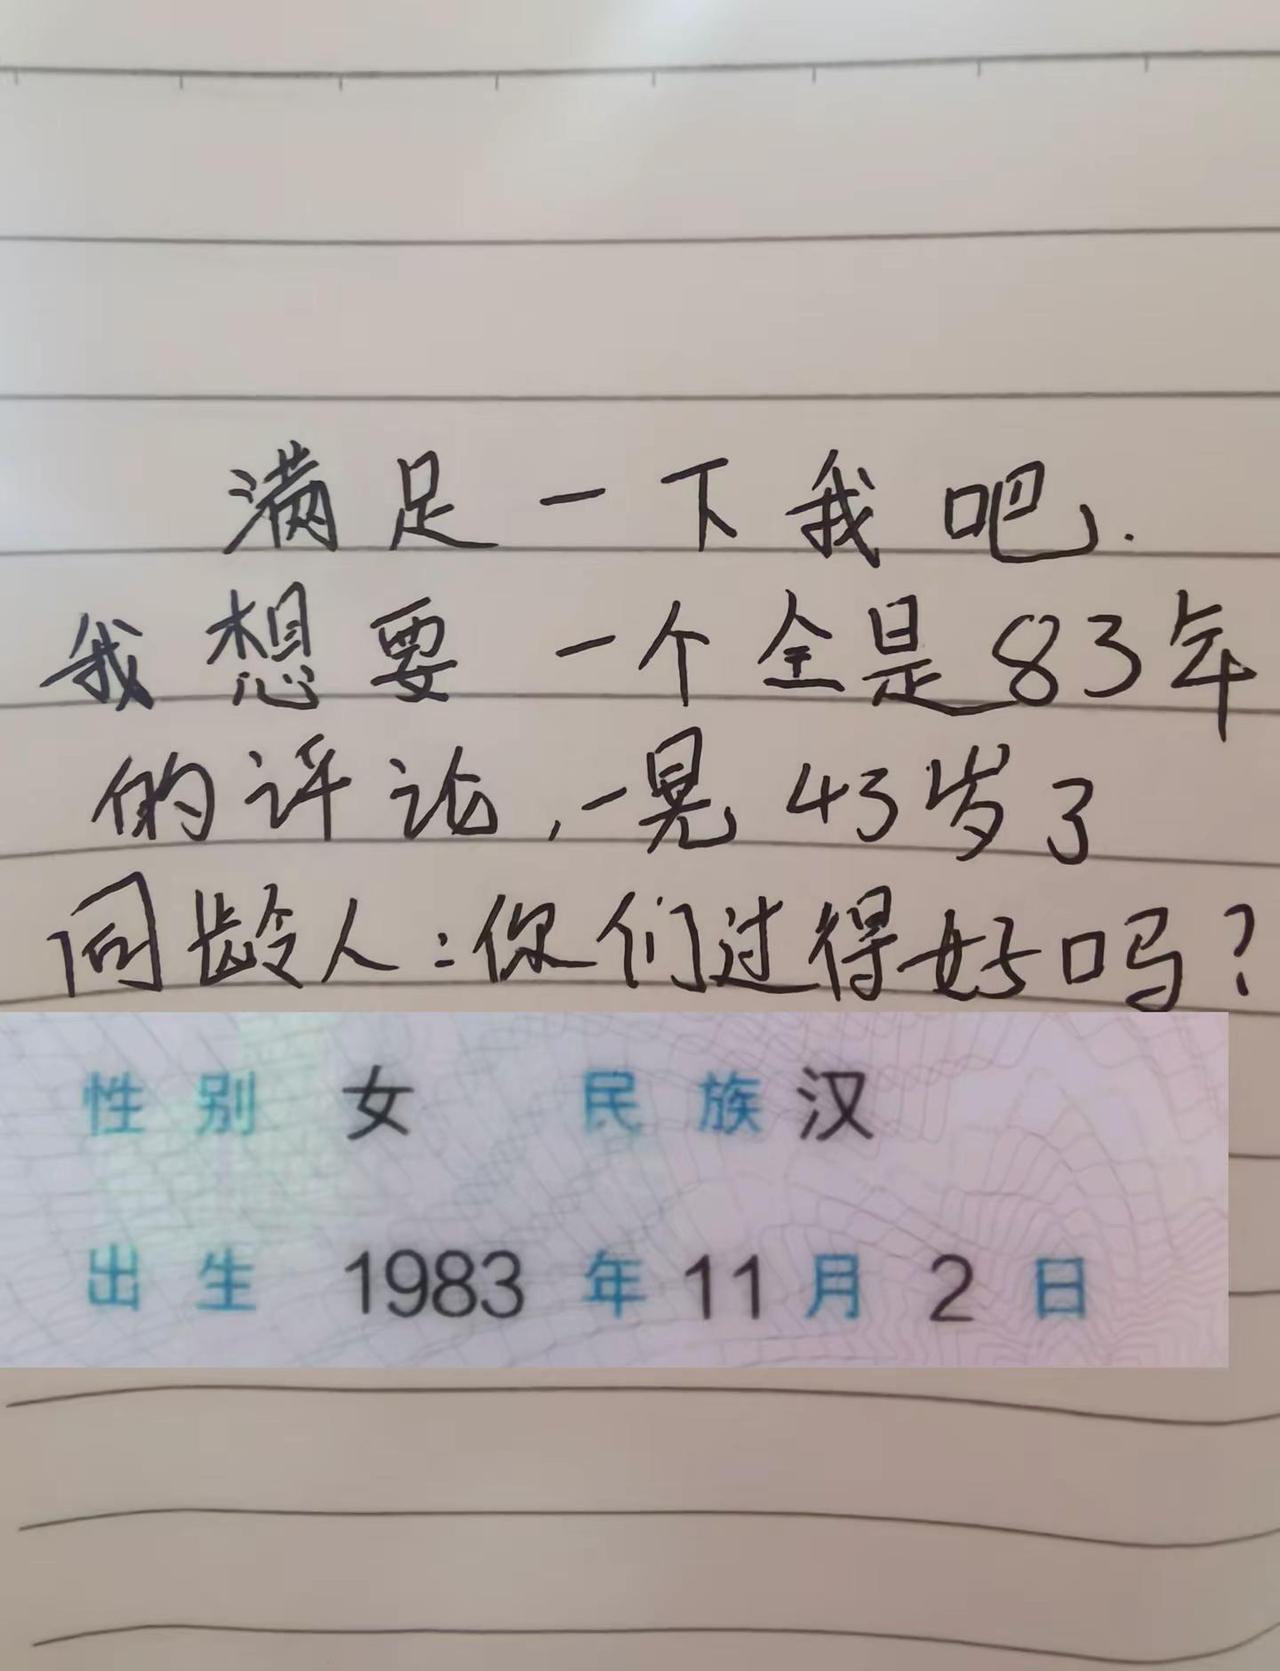 满足一下我吧.
我想要一个全是83年
的评论,一晃43岁了
同龄人:你们过得好吗?
性别 女 民族 汉
出生 1983 年 11 月 2 日